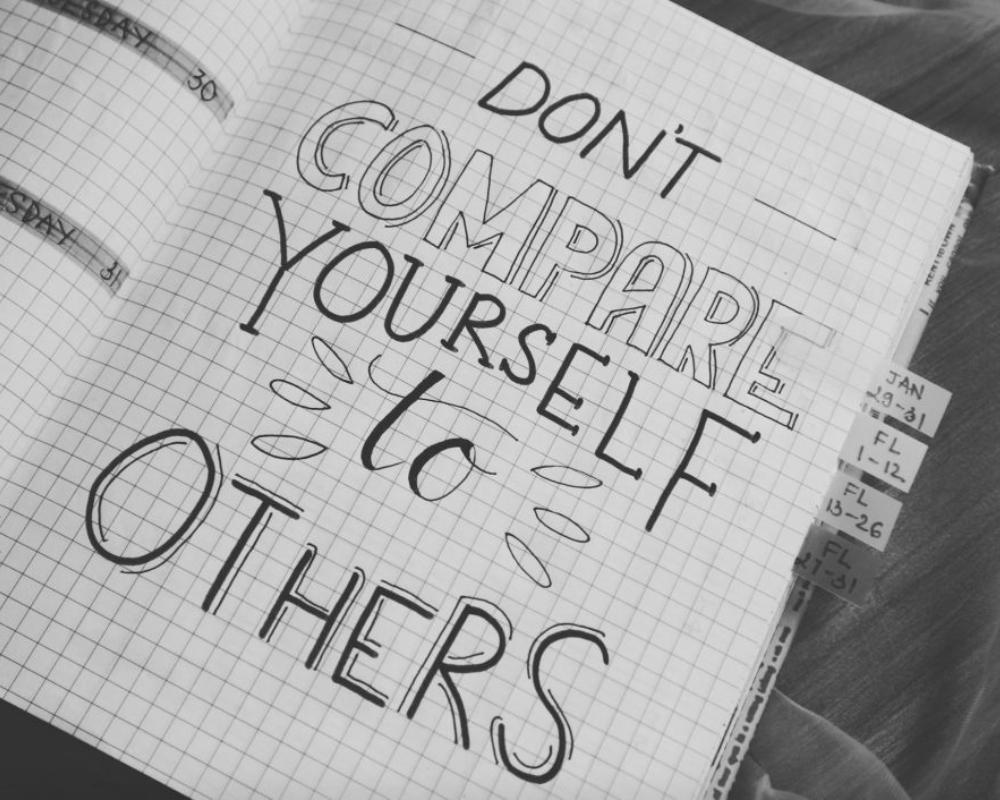 30
31
DON'T
COMPARE
YOURSELF
to
OTHERS
JAN
29-31
FL
1-12
FL
13-26
FL
27-31